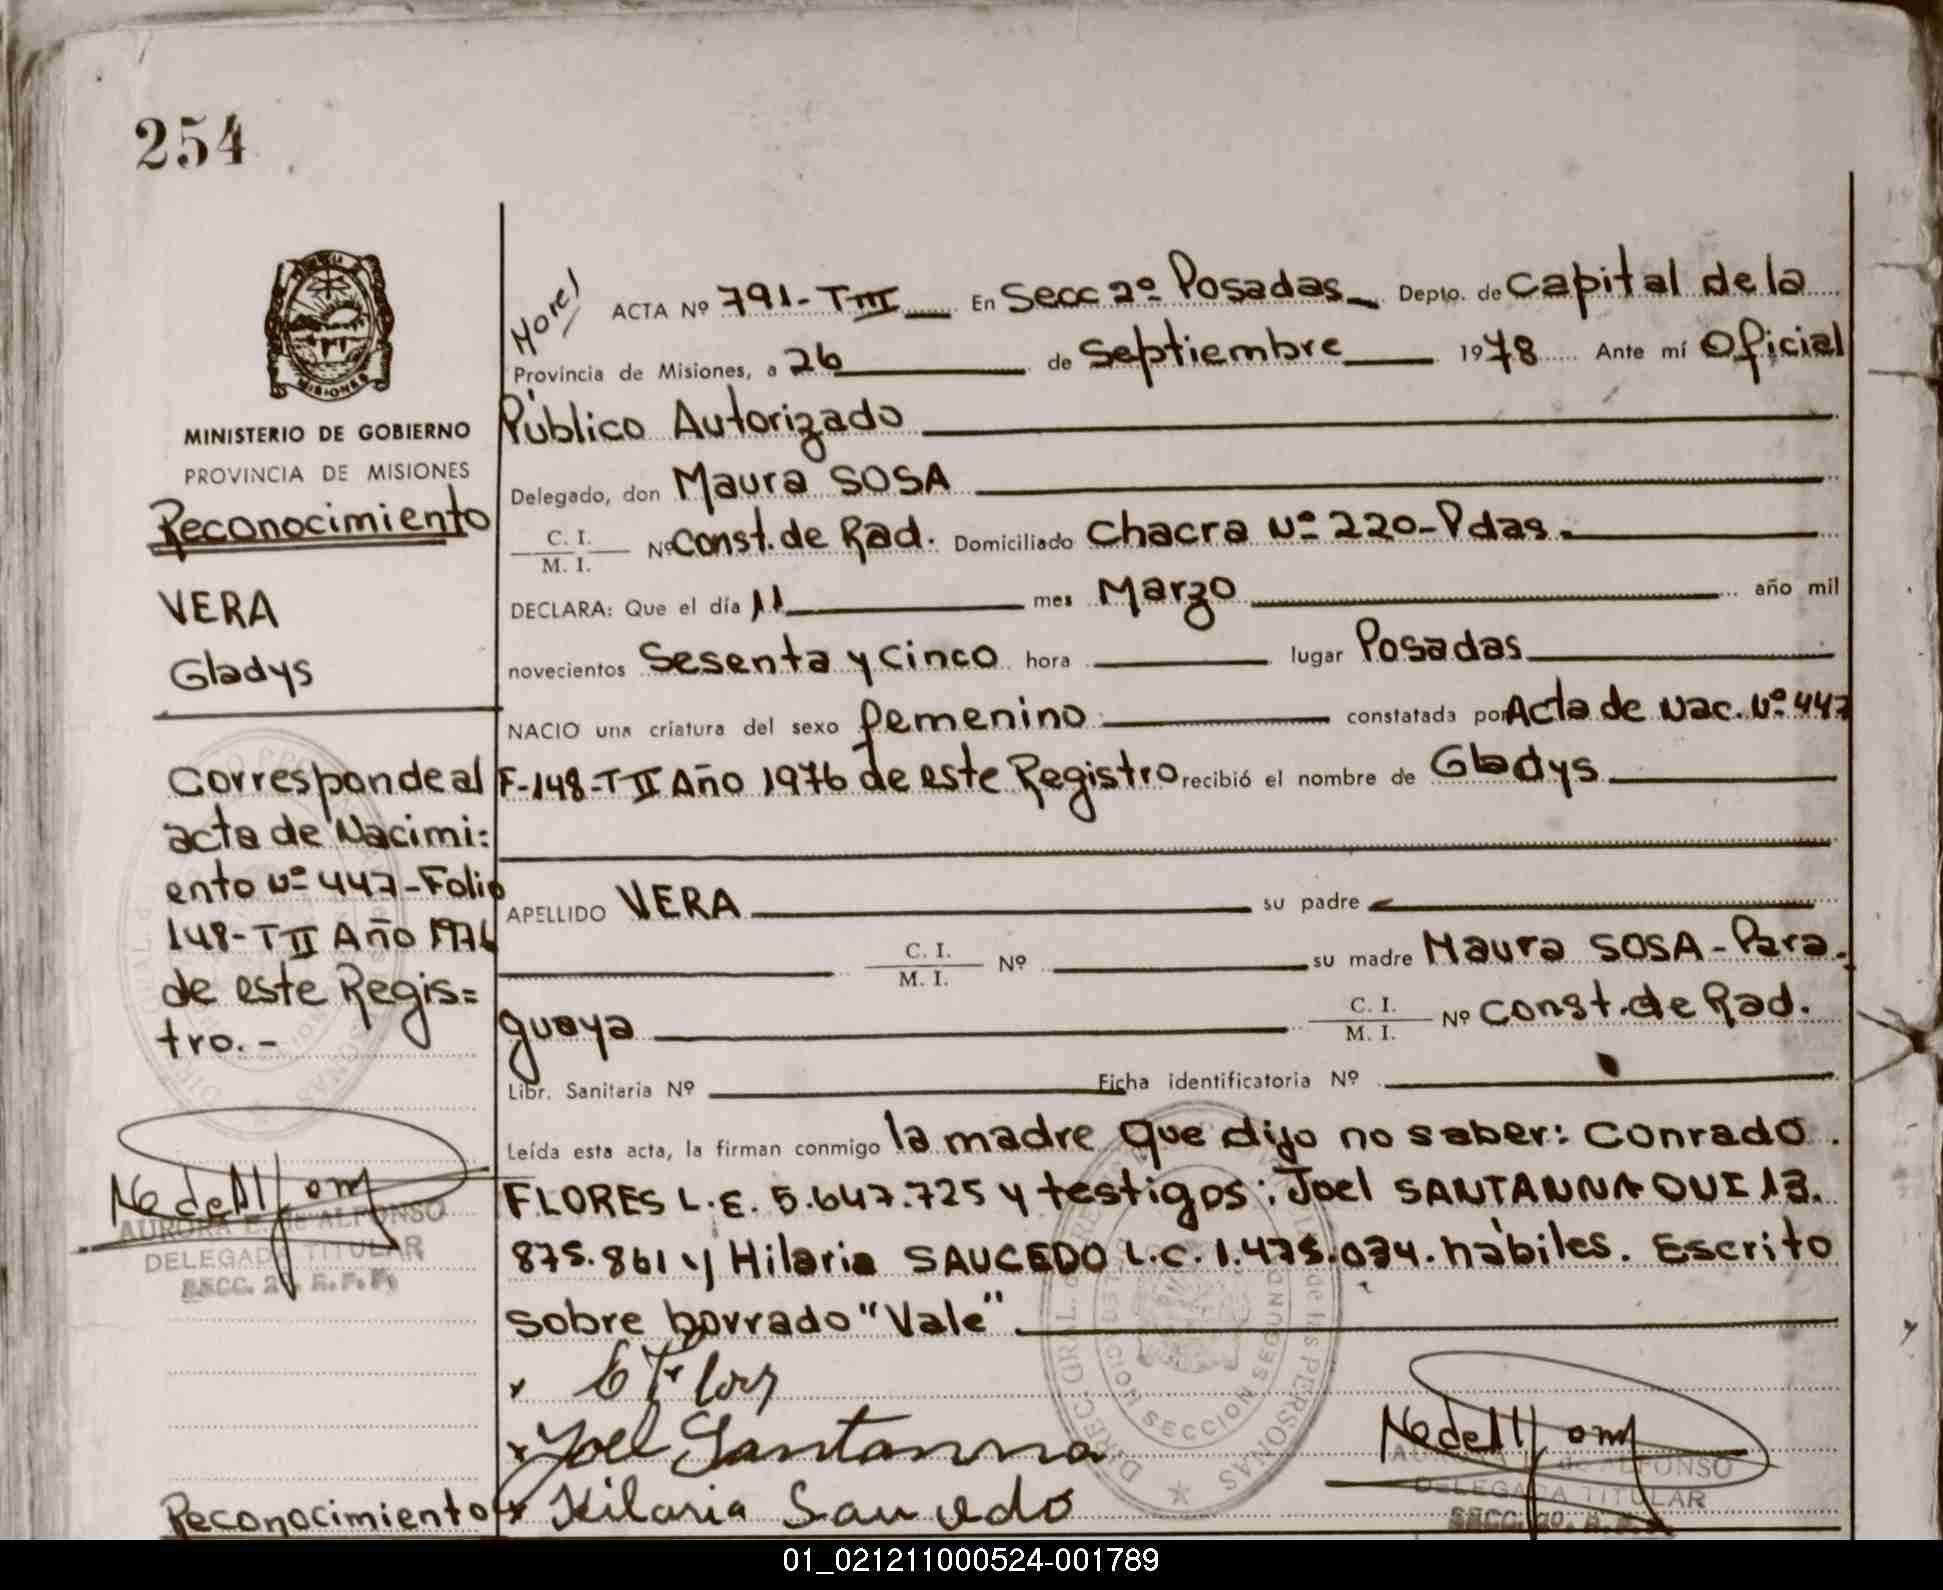 254
Morel
ACTA Nº 791-TIII En Secc 2º Posadas Depto. de Capital de la
Provincia de Misiones, a 26 de Septiembre 1978 Ante mí Oficial
Público Autorizado
Delegado, don Maura SOSA
C. I.
M. I. Nº Const. de Rad. Domiciliado Chacra Nº 220-Pdas.
DECLARA: Que el día 11 mes Marzo año mil
novecientos Sesenta y cinco hora lugar Posadas
NACIO una criatura del sexo femenino constatada por Acta de Nac. Nº 447
F-148-TII Año 1976 de este Registro recibió el nombre de Gladys
APELLIDO VERA su padre
C. I.
M. I. Nº su madre Maura SOSA - Para
guaya C. I.
M. I. Nº Const. de Rad.
Libr. Sanitaria Nº Ficha identificatoria Nº
Leída esta acta, la firman conmigo la madre que dijo no saber: Conrado
FLORES L.E. 5.647.725 y testigos: Joel SANTANNA QUI 13.
875.861 y Hilaria SAUCEDO L.C. 1.475.034. hábiles. Escrito
sobre borrado "Vale"
Joel Santanna
Hilaria Saucedo
MINISTERIO DE GOBIERNO
PROVINCIA DE MISIONES
Reconocimiento
VERA
Gladys
Corresponde al
acta de Nacimi=
ento Nº 447-Folio
148-TII Año 1976
de este Regis=
tro.-
AURORA E. de ALFONSO
DELEGADA TITULAR
SECC. 2a. R.P.P.
Reconocimiento
DIREC. GRAL. de las PERSONAS
SECCION SEGUNDA
de ALFONSO
DELEGADA TITULAR
01_021211000524-001789